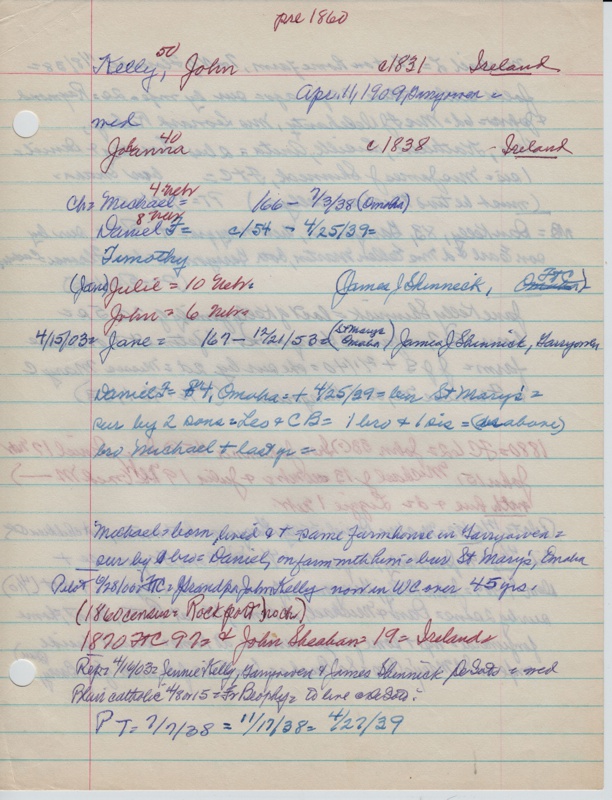 pre 1860
Kelly, 50 John c1831 Ireland
Apr. 11, 1909, Garryowen =
med
Johanna 40 c1838 - Ireland
Ch = Michael = 4 Nebr 166 - 7/3/38 (Omaha)
Daniel F = 8 Nebr c/54 - 4/25/39 =
Timothy
(Jane) Julie = 10 Nebr. (James J Shinnick, FTC
John = 6 Nebr.
4/15/03 = Jane = 167 - 12/21/53 = (St Marys Omaha) James J Shinnick, Garryowen
Daniel F = 84, Omaha = + 4/25/39 = bur St Mary's =
sur by 2 sons = Leo & CB = 1 bro & 1 sis = (above)
bro Michael + last yr =
Michael = born, lived & + same farmhouse in Garryowen =
sur by bro = Daniel, on farm with him = bur St Mary's, Omaha
Pilot 6/28/60 = FTC = Grandpa John Kelly now in WC over 45 yrs.
(1860 census = Rockport rock)
1870 FTC 97 = & John Sheahan = 19 = Ireland
Rep = 4/16/03 = Jennie Kelly, Garryowen & James Shinnick DeSoto = med
Plain Catholic 4/8 or 15 = Fr Brophy = to live DeSoto.
P T = 7/7/38 = 11/17/38 = 4/27/39